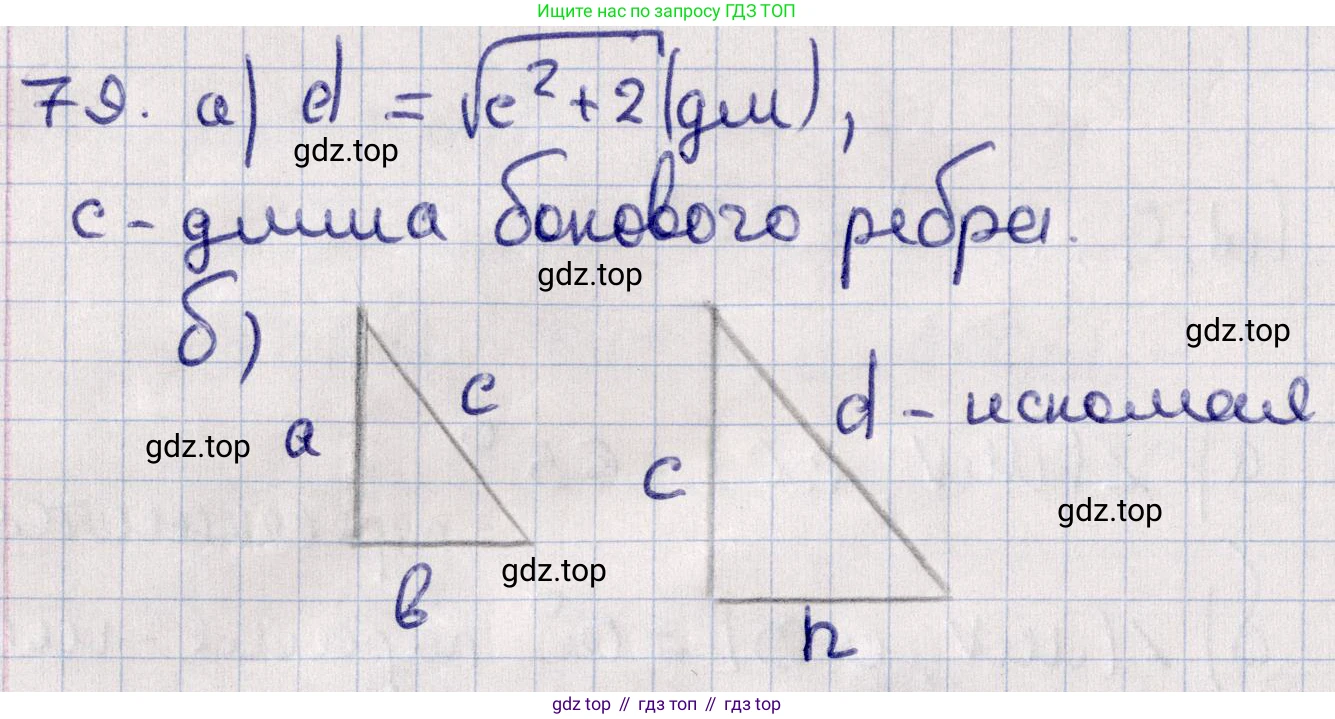 Ищите нас по запросу ГДЗ ТОП
79. а) d = √c²+2 (дм),
gdz.top
c - длина бокового ребра.
gdz.top
б)
gdz.top
c
d - искомая
gdz.top
a
c
gdz.top
gdz.top
в
n
gdz top // гдз топ // gdz top